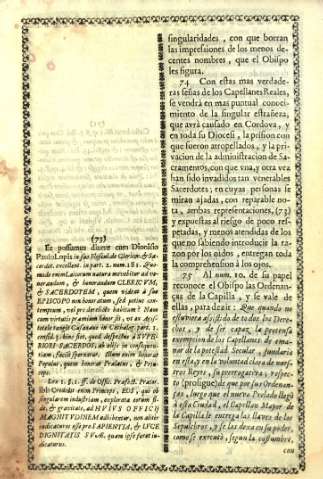 singularidades, con que borran
las impressiones de los menos de-
centes nombres, que el Obispo
les figura.
74 Con estas mas verdade-
ras señas de los Capellanes Reales,
se vendrà en mas puntual conoci-
miento de la singular estrañeza,
que avrà causado en Cordova, y
en toda su Diocesi, la prision con
que fueron atropellados, y la pri-
vacion de la administracion de Sa-
cramentos, con que vna, y otra vez
han sido invadidos tan venerables
Sacerdotes; en cuyas personas se
miran ajadas, con reparable no-
ta, ambas representaciones, (73)
y expuestas al riesgo de poco res-
petadas, y menos atendidas de los
que no sabiendo introducir la ra-
zon por los oidos, entregan toda
la comprehension à los ojos.
75 Al num. 10. de su papel
reconoce el Obispo las Ordenan-
ças de la Capilla, y se vale de
ellas, para dezir: Que quando no
estuviera assistido de todos los Dere-
chos, y de ser capaz, la pretensa
exempcion de los Capellanes de ema-
nar de la potestad Secular, fundaria
en esta, y en la voluntad clara de nues-
tros Reyes, su prerrogativa, respec-
to (prosigue) de que por sus Ordenan-
ças, luego que el nuevo Prelado llega
à esta Ciudad, el Capellan Mayor de
la Capilla le entrega las llaves de los
Sepulcros, y se las dexa en su poder,
como se executò, segun la costumbre,
con
(73)
Et possumus dicere cum Dionisio
Paulo Lopis in suo
cerdot. excellent. in part. 2. num. 181.
norandum, & honorandum CLERICVM,
& SACERDOTEM, quem videat à suo
EPISCOPO non honoratum, sed potius con-
temptum, vel pro derelicto habitum? Nam
cum virtutis præmium sit honor, vt ex Aristo-
tele
RIORI SACERDOS, ab alijs in consequen-
tiam, facile spernetur. Illum enim honorat
Populus, quem honorat Prælatus, & Prin-
ceps.
Leg. 1. §. 1. ff. de Offic. Præfect. Præto-
rio
singularem industriam, explorata eorum fi-
de, & gravitate, ad HVIVS OFFICIJ
MAGNITVDINEM adhiberentur, non aliter
iudicaturos esse pro SAPIENTIA, & LVCE
DIGNITATIS SVÆ, quam ipse foret iu-
dicaturus.